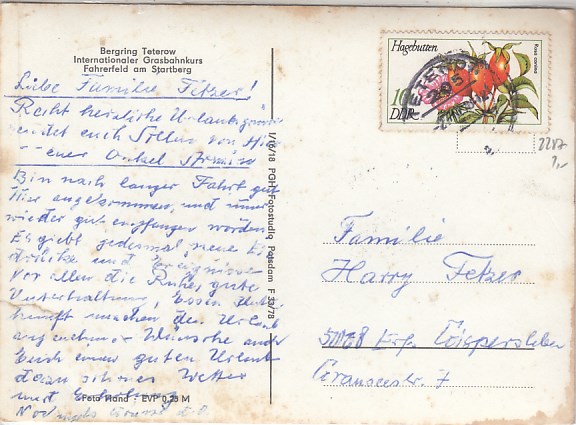 Bergring Teterow
Internationaler Grasbahnkurs
Fahrerfeld am Startberg
Hagebutten
Rosa canina
10
DDR
TETEROW
Liebe Familie Fetzer!
Recht herzliche Urlaubsgrüße
sendet euch
euer Onkel Armin
Bin nach langer Fahrt gut
hier angekommen, und immer
wieder gut empfangen worden.
Es giebt jedesmal neue Ein
drücke und Ereignisse
Vor allen die Ruhe, gute
Unterhaltung, Essen Unter
kunft machen den Urlaub
angenehm. Wünsche auch
Euch einen guten Urlaub
dazu schönes Wetter
und Erholung
Nochmals Grüße d. O.
I/16/18 PGH Fotostudio Potsdam F 33/78
2287
1,-
Familie
Harry Fetzer
5028 Erf. Bispersleben
7
Foto Hand · EVP 0,25 M